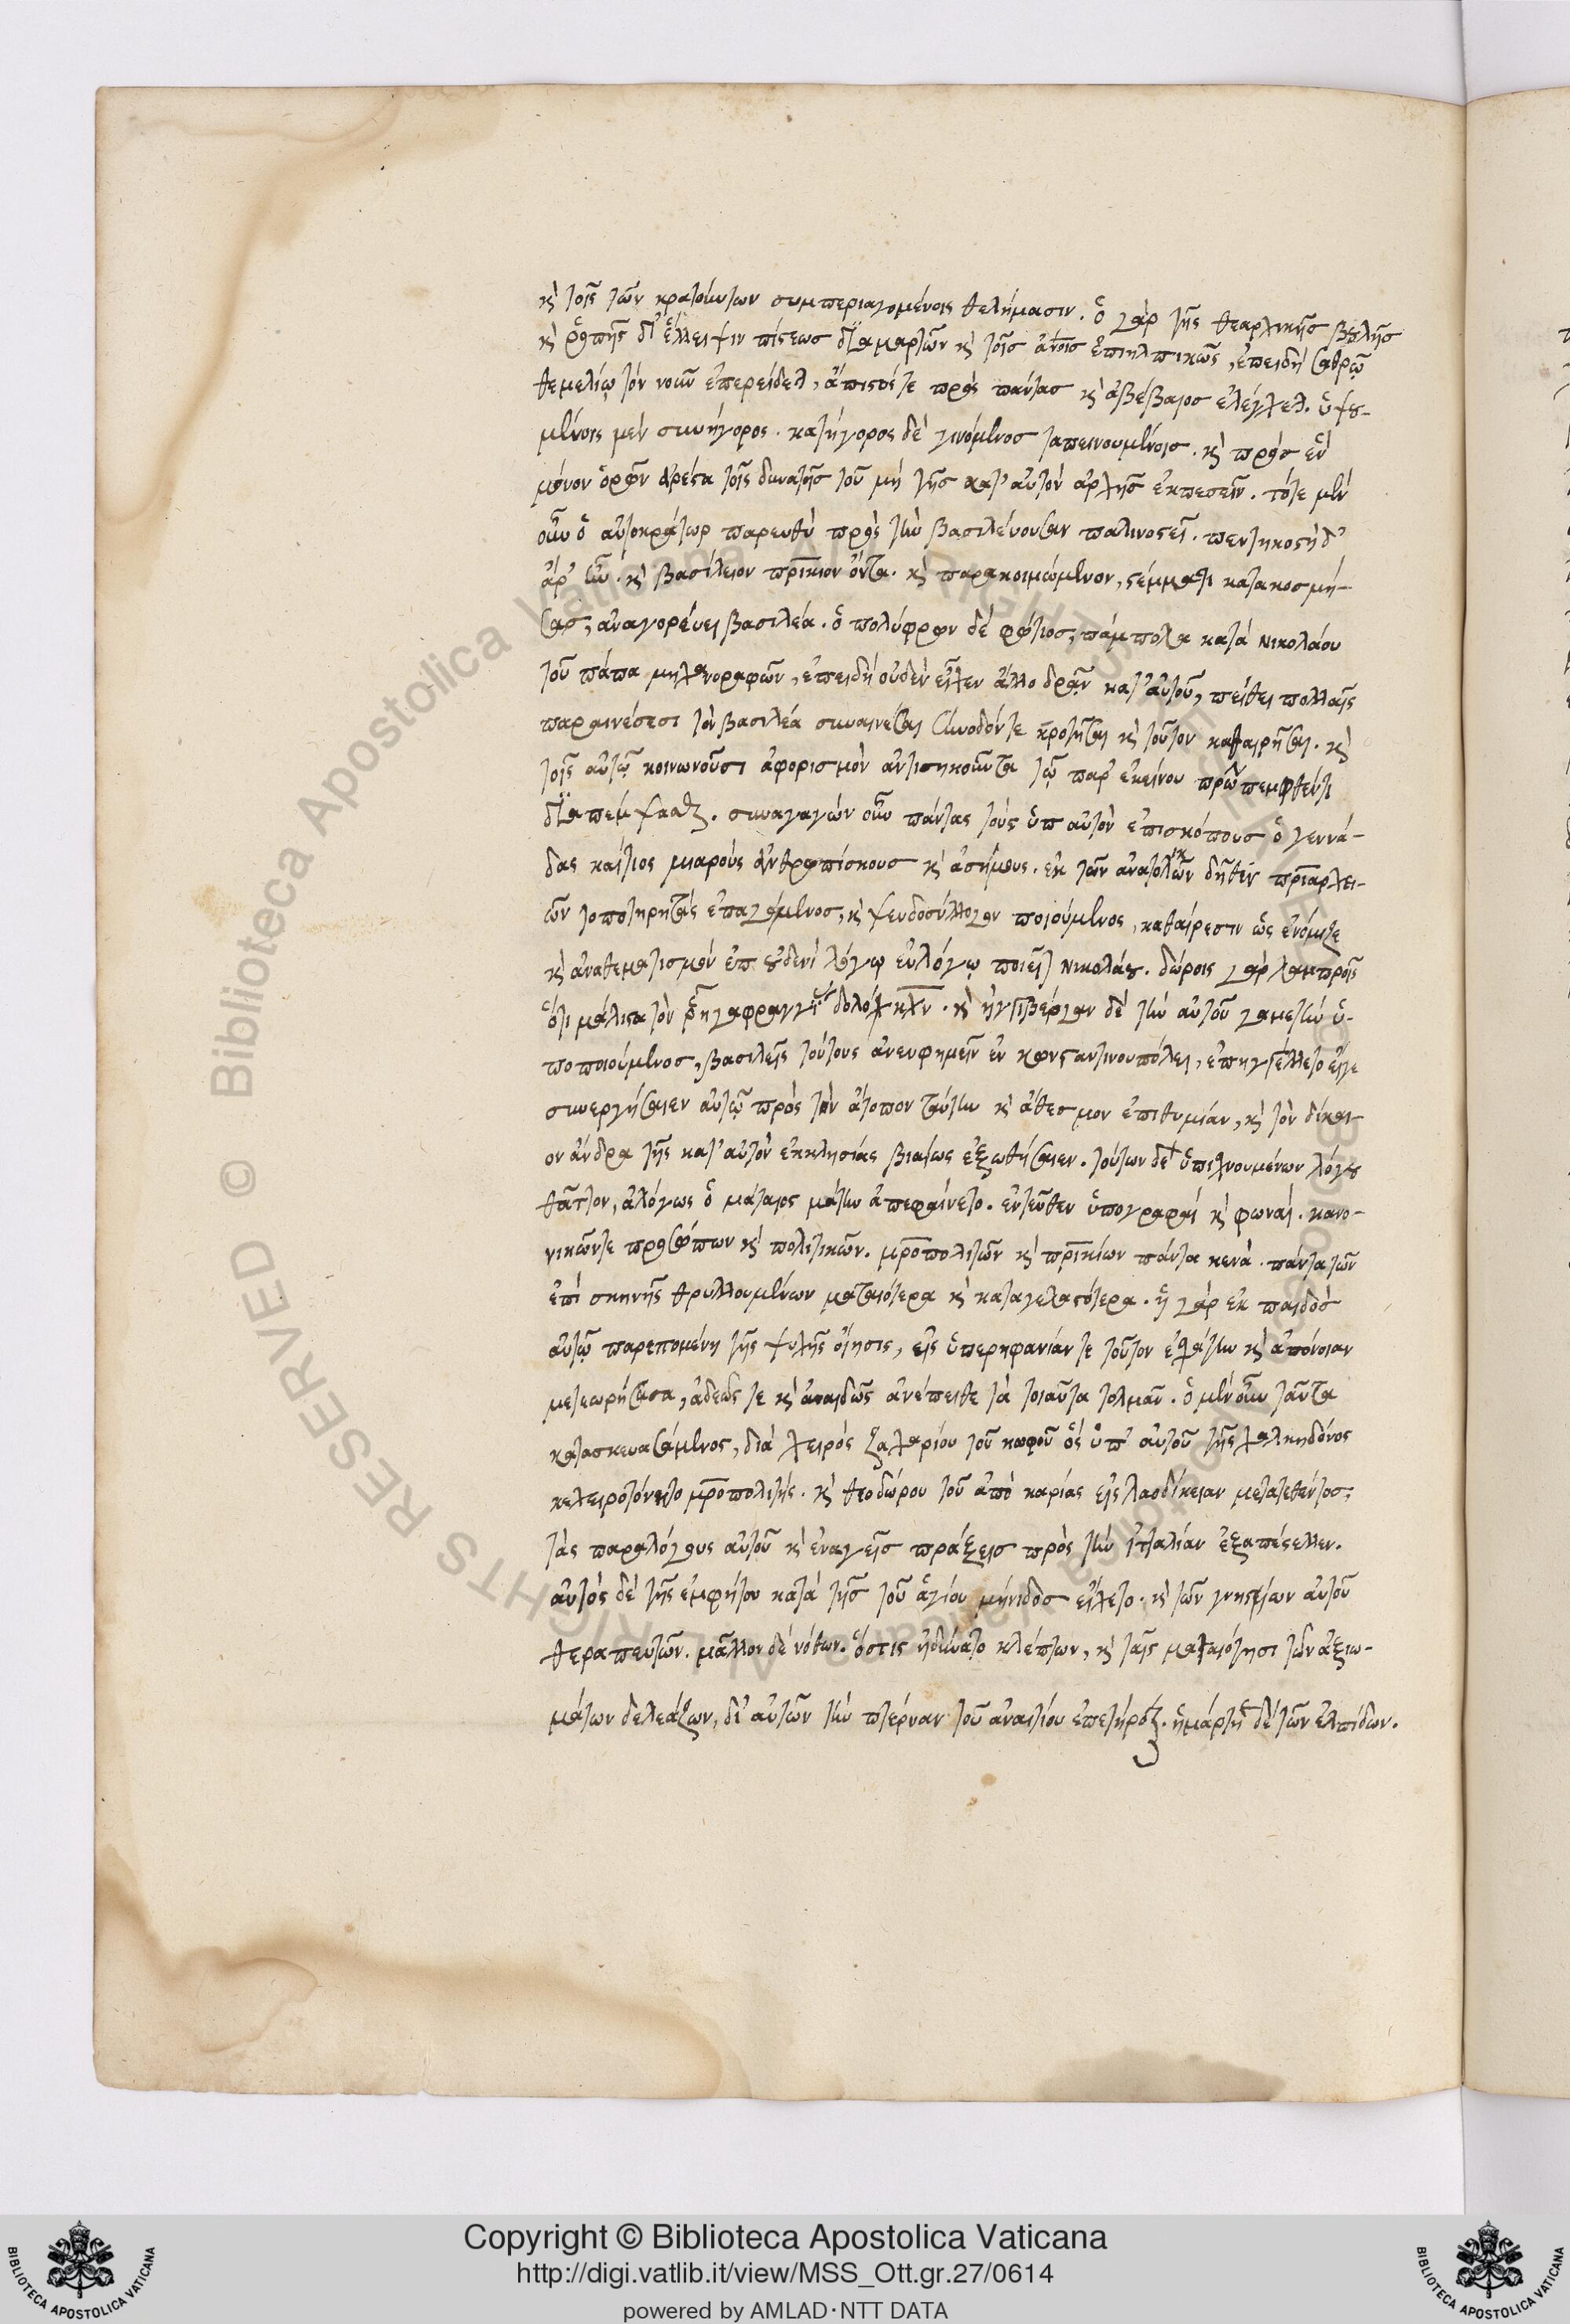 κ̀ τοῖς τῶν κρατούντων συμπεριαγομένοις θελήμασιν. ὁ γὰρ τῆς θεαρχικῆς βουλῆς
κ̀ ῥοπῆς δι' ἔλλειψιν πίστεως διαμαρτὼν κ̀ τοῖς ἀνοις ἐπιηλπικὼς, ἐπειδὴ σαθρῷ
θεμελίῳ τὸν νοῦν ἐπερείδεται, ἄπιστός τε πρὸς πάντας κ̀ ἀβέβαιος ἐλέγχεται. ὑψου-
μένοις μὲν συνήγορος. κατήγορος δὲ γινόμενος ταπεινουμένοις. κ̀ πρὸς ἓν
μόνον ὁρῶν ἀρέσαι τοῖς δυναταῖς τοῦ μὴ τῆς κατ' αὐτὸν ἀρχῆς ἐκπεσεῖν. τότε μὲν
οὖν ὁ αὐτοκράτωρ παρευθὺ πρὸς τὴν βασιλεύουσαν παλινοστεῖ. πεντηκοστὴ δ'
ἄρ' ἦν. κ̀ βασίλειον πρίκιον ὄντα. κ̀ παρακοιμώμενον, στέμματι κατακοσμή-
σας, ἀναγορεύει βασιλέα. ὁ πολύφρων δὲ φώτιος, πάμπολα κατὰ νικολάου
τοῦ πάπα μηχανορραφῶν, ἐπειδὴ οὐδὲν εἶχεν ἄλλο δρᾶν κατ' αὐτοῦ, πείθει πολλαῖς
παραινέσεσι τὸν βασιλέα συναινέσαι σύνοδόν τε κροτῆσαι κ̀ τοῦτον καθαιρῆσαι. κ̀
τοῖς αὐτῷ κοινωνοῦσι ἀφορισμὸν ἀντισηκοῦντα τῷ παρ' ἐκείνου πρώην πεμφθέντι
διαπέμψασθαι. συναγαγὼν οὖν πάντας τοὺς ὑπ αὐτὸν ἐπισκόπους ὁ γεννά-
δας καί τινας μιαροὺς ἀνθρωπίσκους κ̀ ἀσήμους. ἐκ τῶν ἀνατολικῶν δῆθεν πριαρχεί-
ων τοποτηρητὰς ἐπαγόμενος, κ̀ ψευδοσύλλογον ποιούμενος, καθαίρεσιν ὡς ἐνόμιζε
κ̀ ἀναθεματισμὸν ἐπ οὐδενὶ λόγῳ εὐλόγῳ ποιεῖται νικολάου. δώροις γὰρ λαμπροῖς
ὅτι μάλιστα τὸν ῥῆγα φραγγίας δολόηχον. κ̀ ἠγγιβέργαν δὲ τὴν αὐτοῦ γαμετὴν ὑ-
ποποιούμενος, βασιλεῖς τούτους ἀνευφημεῖν ἐν κωνσταντινουπόλει, ἐπηγγέλλετο εἴγε
συνεργήσαιεν αὐτῷ πρὸς τὴν ἄτοπον ταύτην κ̀ ἄθεσμον ἐπιθυμίαν, κ̀ τὸν δίκαι-
ον ἄνδρα τῆς κατ' αὐτὸν ἐκκλησίας βιαίως ἐξωθήσαιεν. τούτων δὲ ὑπισχνουμένων λόγου
θᾶττον, ἀλόγως ὁ μάταιος μάτην ἀπεφαίνετο. ἐντεῦθεν ὑπογραφαὶ κ̀ φωναὶ. κανο-
νικῶν τε προσώπων κ̀ πολιτικῶν. μροπολιτῶν κ̀ πρικίων πάντα κενὰ. πάντα τῶν
ἐπὶ σκηνῆς θρυλλουμένων ματαιότερα κ̀ καταγελαστότερα. ἡ γὰρ ἐκ παιδὸς
αὐτῷ παρεπομένη τῆς ψυχῆς οἴησις, εἰς ὑπερηφανίαν τε τοῦτον ἐσχάτην κ̀ ἀπόνοιαν
μετεωρήσασα, ἀδεῶς τε κ̀ ἀναιδῶς ἀνέπειθε τὰ τοιαῦτα τολμᾶν. ὁ μὲν οὖν ταῦτα
κατασκευασάμενος, διὰ χειρὸς ζαχαρίου τοῦ κωφοῦ ὃς ὑπ' αὐτοῦ τῆς χαλκηδόνος
κεχειροτόνητο μροπολίτης. κ̀ θεοδώρου τοῦ ἀπὸ καρίας εἰς λαοδίκειαν μετατεθέντος,
τὰς παραλόγους αὐτοῦ κ̀ ἐναγεῖς πράξεις πρὸς τὴν ἰταλίαν ἐξαπέστελλεν.
αὐτὸς δὲ τῆς ἐμφύτου κατὰ τῆς τοῦ ἁγίου μήνιδος εἴχετο. κ̀ τῶν γνησίων αὐτοῦ
θεραπευτῶν. μᾶλλον δὲ νόθων. ὅστις ἠδύνατο κλέπτων, κ̀ ταῖς ματαιότησι τῶν ἀξιω-
μάτων δελεάζων, δι' αὐτῶν τὴν πτέρναν τοῦ ἀναιτίου ἐπετήρει. ἡμάρτηται δὲ τῶν ἐλπίδων.
Copyright © Biblioteca Apostolica Vaticana
http://digi.vatlib.it/view/MSS_Ott.gr.27/0614
powered by AMLAD·NTT DATA